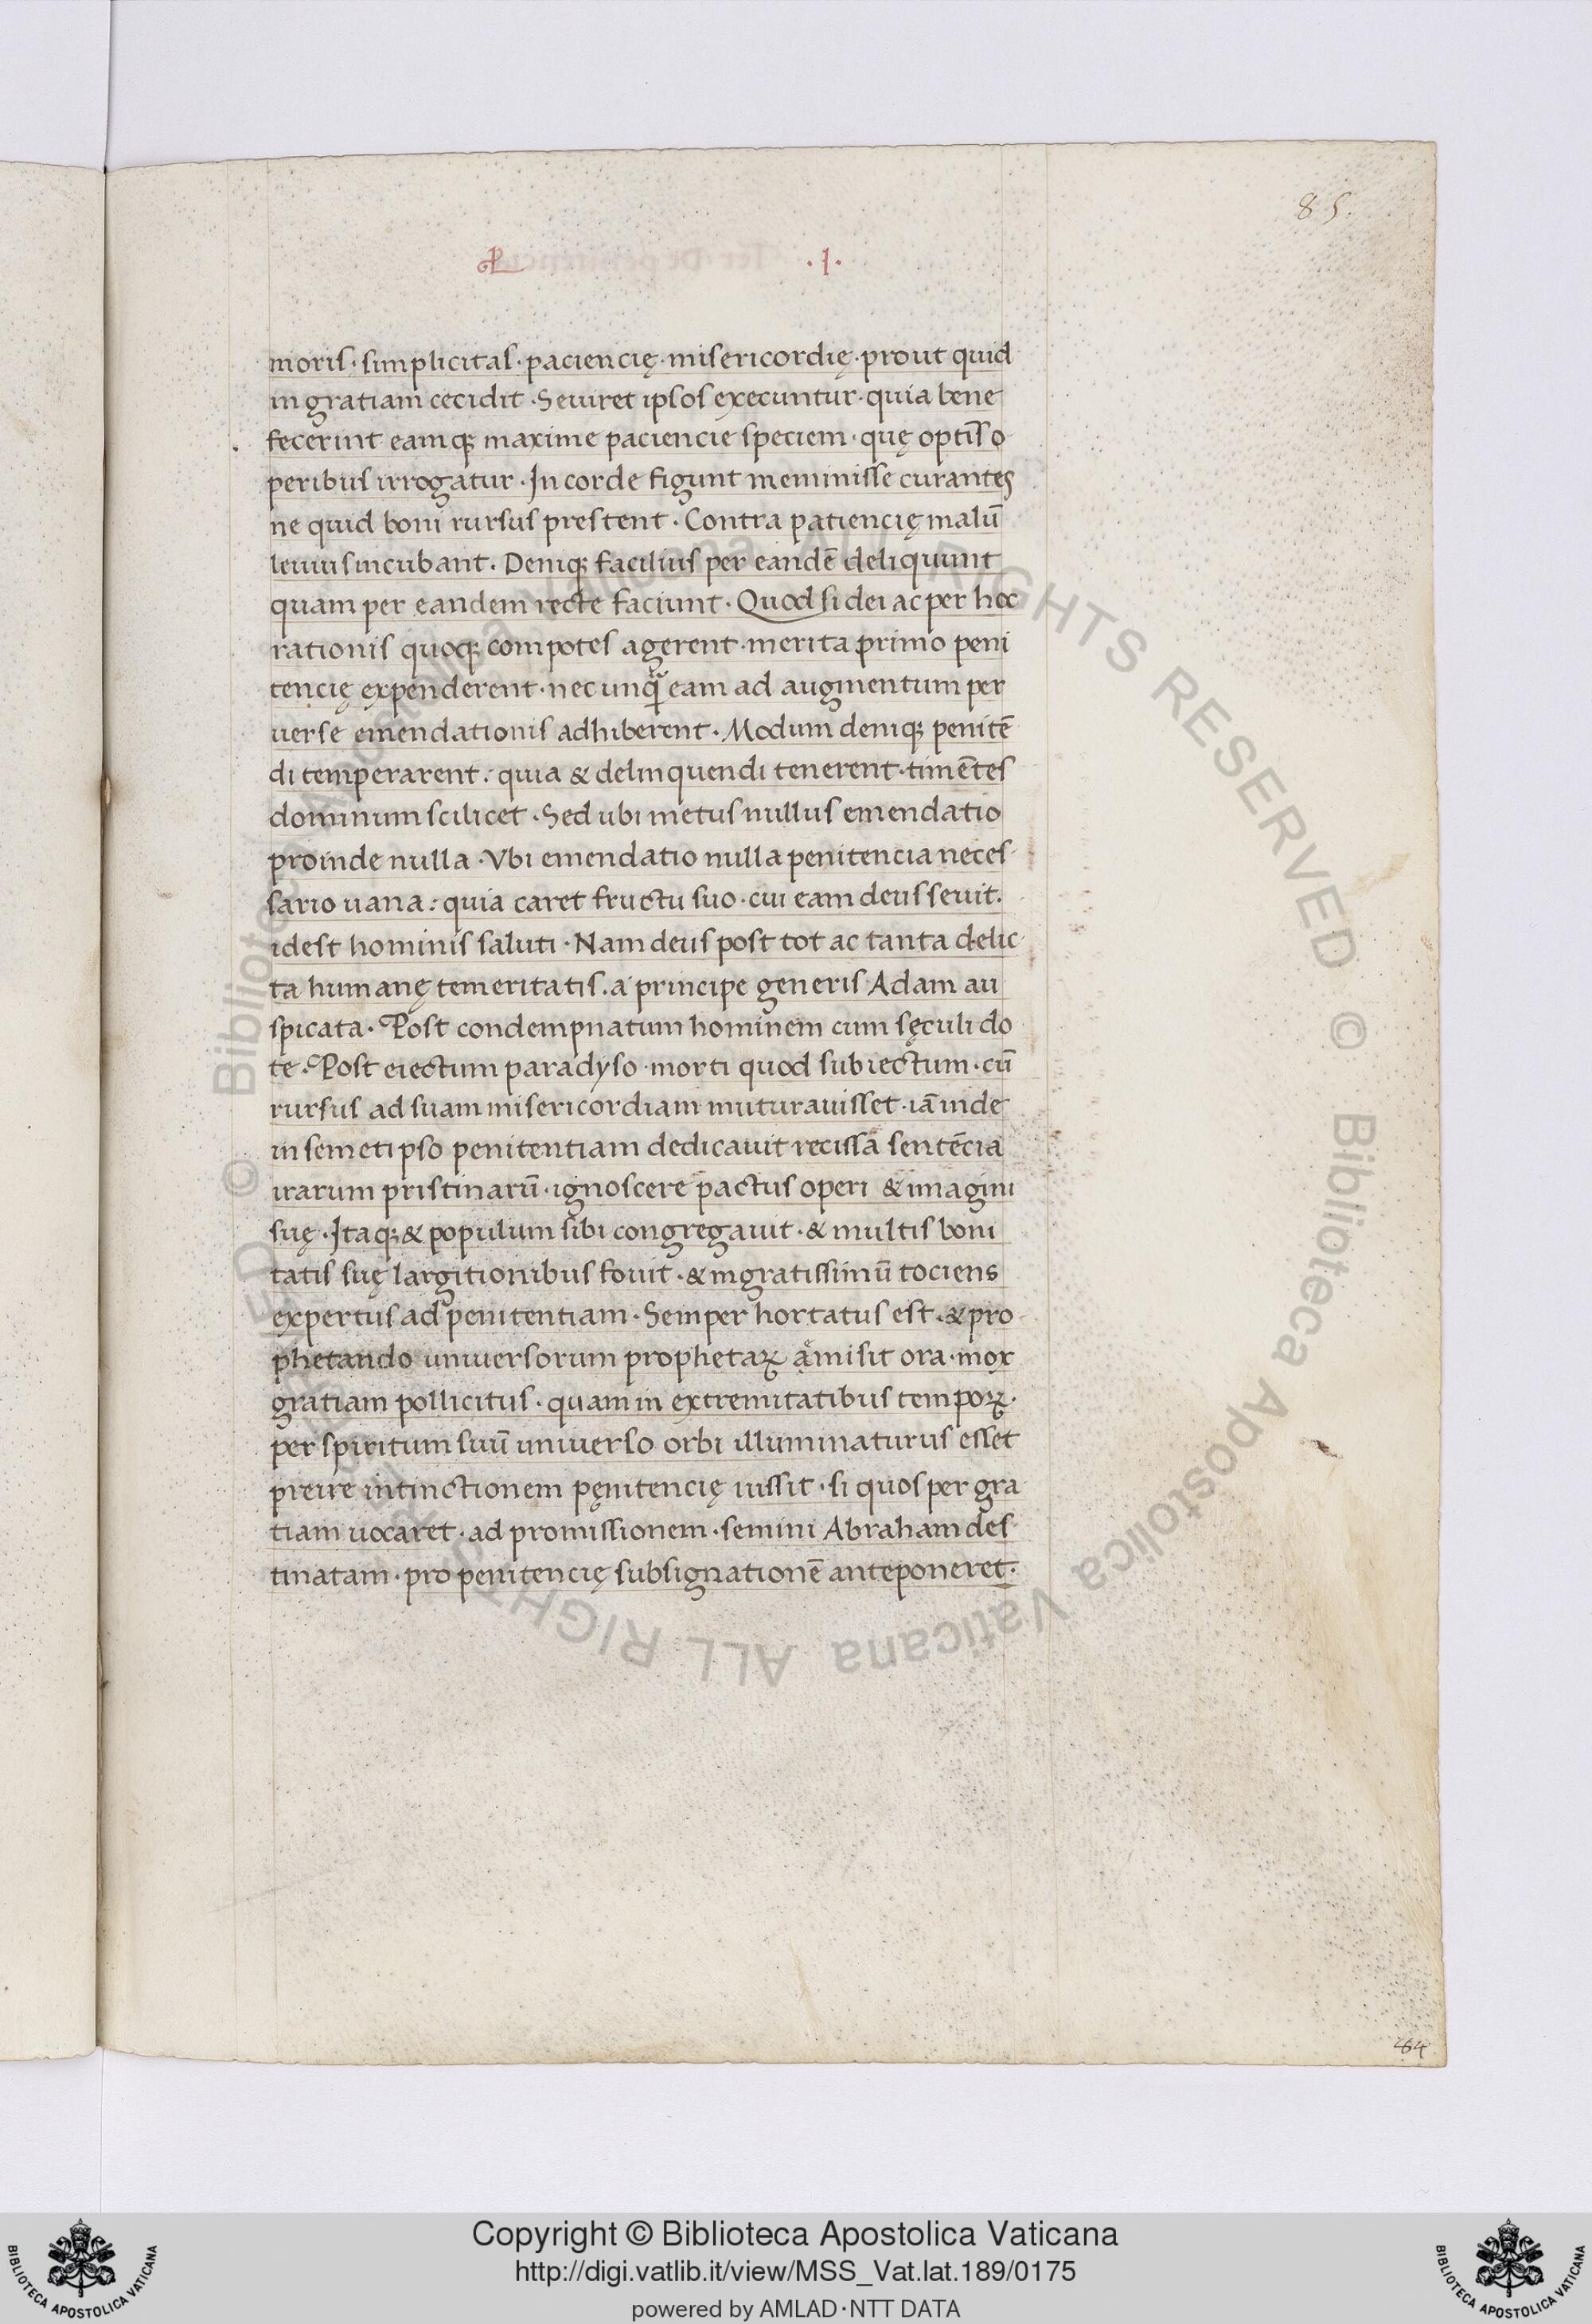 85.
.I.
moris · simplicitas · paciencię · misericordię · prout quid
in gratiam cecidit · Seiuret ipsos execuntur · quia bene
fecerint eamq; maxime paciencie speciem · quę optīs o
peribus irrogatur · In corde figunt meminisse curantes
ne quid boni rursus prestent · Contra patiencię malū
leuius incubant. Deniq; facilius per eandē deliquunt
quam per eandem recte faciunt · Quod si dei ac per hoc
rationis quoq; compotes agerent · merita primo peni
tencię expenderent · nec unqͣ eam ad augmentum per
uerse emendationis adhiberent · Modum deniq; penitē
di temperarent : quia & delinquendi tenerent · timētes
dominum scilicet · Sed ubi metus nullus emendatio
proinde nulla · Vbi emendatio nulla penitencia neces
sario uana : quia caret fructu suo · cui eam deus seuit.
idest hominis saluti · Nam deus post tot ac tanta delic
ta humanę temeritatis . a principe generis Adam au
spicata · Post condempnatum hominem cum sęculi do
te · Post eiectum paradyso · morti quod subiectum · cū
rursus ad suam misericordiam muturauisset · iā inde
in semetipso penitentiam dedicauit recissa sentēcia
irarum pristinarū · ignoscere pactus operi & imagini
suę · Itaq; & populum sibi congregauit · & multis boni
tatis suę largitionibus fouit · & ingratissimū tociens
expertus ad penitentiam · Semper hortatus est · & pro
phetando uniuersorum prophetaꝝ ęmisit ora · mox
gratiam pollicitus · quam in extremitatibus tempoꝝ ·
per spiritum suū uniuerso orbi illuminaturus esset
preire intinctionem pęnitencię iussit · si quos per gra
tiam uocaret · ad promissionem · semini Abraham des
tinatam · pro penitencię subsignationē anteponeret ·
64
Copyright © Biblioteca Apostolica Vaticana
http://digi.vatlib.it/view/MSS_Vat.lat.189/0175
powered by AMLAD·NTT DATA
BIBLIOTECA APOSTOLICA VATICANA
BIBLIOTECA APOSTOLICA VATICANA
© Biblioteca Apostolica Vaticana ALL RIGHTS RESERVED © Biblioteca Apostolica Vaticana ALL RIGHTS RESERVED